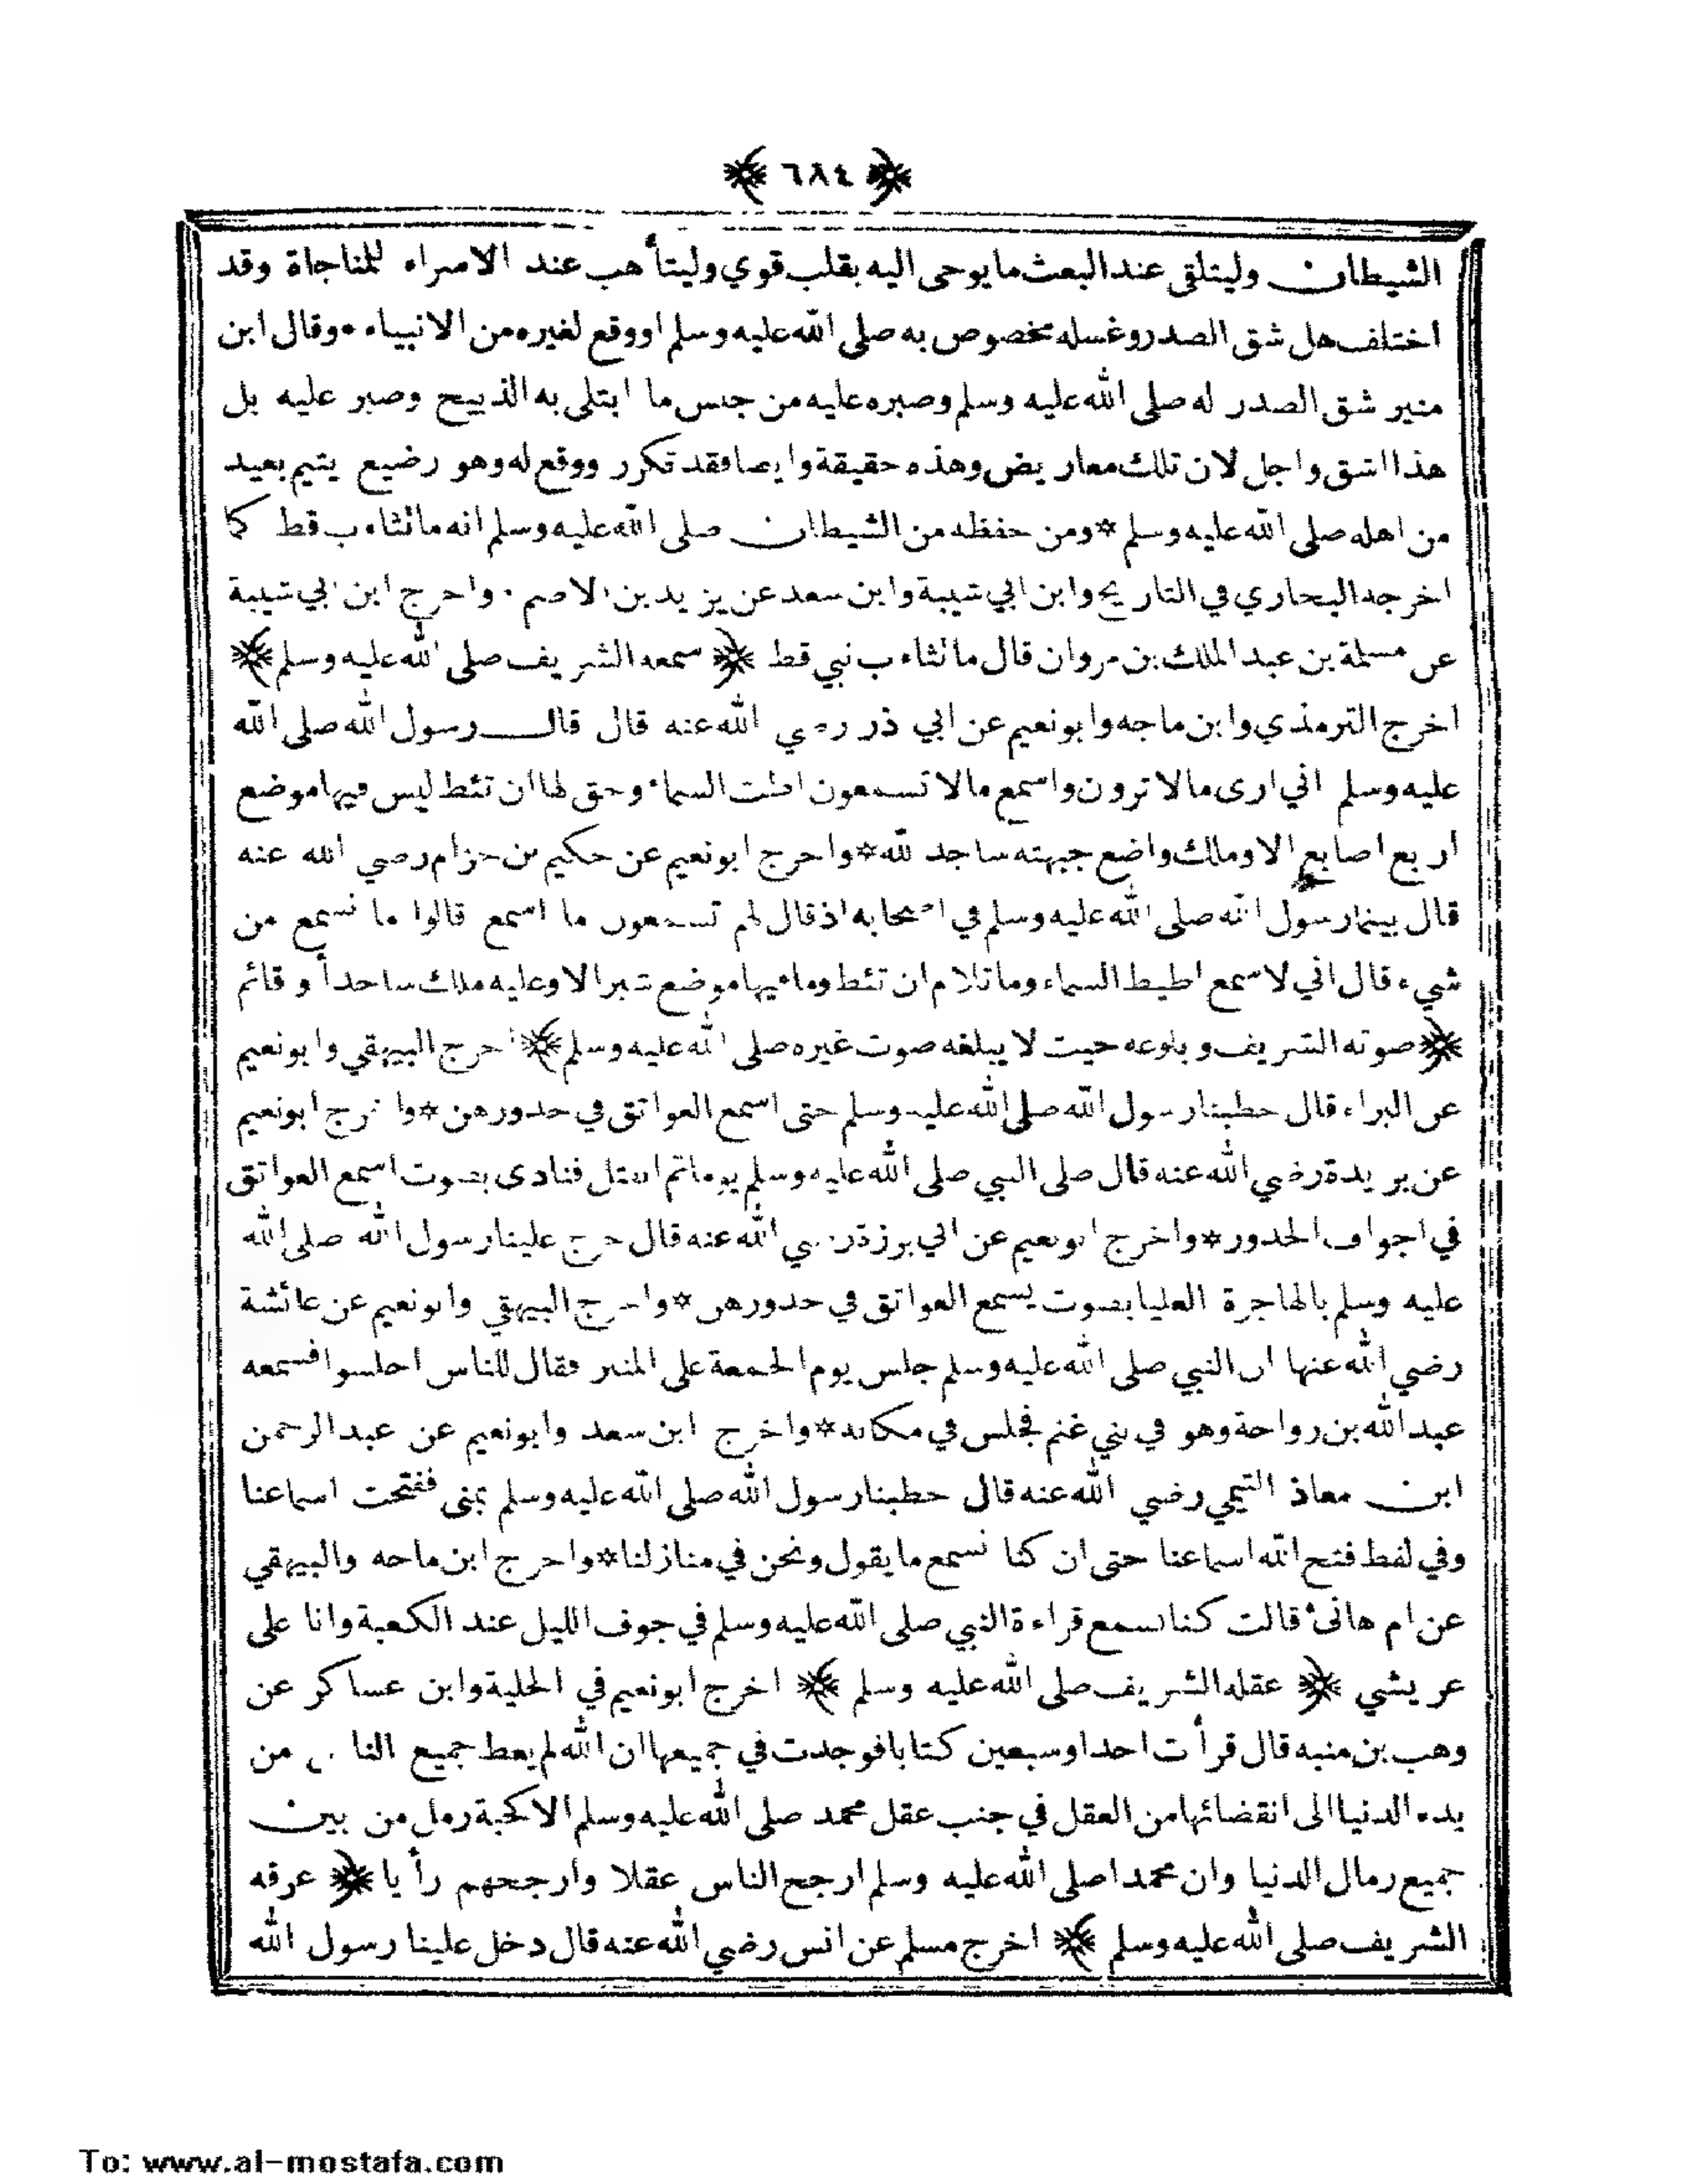 ﴿ ٦٨٤ ﴾
الشيطان وليتلقى عند البعث ما يوحى اليه بقلب قوي وليتأهب عند الاسراء للمناجاة وقد
اختلف هل شق الصدر وغسله مخصوص به صلى الله عليه وسلم او وقع لغيره من الانبياء ٠ وقال ابن
منير شق الصدر له صلى الله عليه وسلم وصبره عليه من جنس ما ابتلي به الذبيح وصبر عليه بل
هذا اشق واجل لان تلك معاريض وهذه حقيقة وايضا فقد تكرر ووقع له وهو رضيع يتيم بعيد
من اهله صلى الله عليه وسلم * ومن حفظه من الشيطان صلى الله عليه وسلم انه ما تثاءب قط كما
اخرجه البخاري في التاريخ وابن ابي شيبة وابن سعد عن يزيد بن الاصم ٠ واخرج ابن ابي شيبة
عن مسلمة بن عبد الملك بن مروان قال ما تثاءب نبي قط ﴿ سمعه الشريف صلى الله عليه وسلم ﴾
اخرج الترمذي وابن ماجه وابو نعيم عن ابي ذر رضي الله عنه قال قال رسول الله صلى الله
عليه وسلم اني ارى ما لا ترون واسمع ما لا تسمعون اطت السماء وحق لها ان تئط ليس فيها موضع
اربع اصابع الا وملك واضع جبهته ساجد لله * واخرج ابو نعيم عن حكيم بن حزام رضي الله عنه
قال بينما رسول الله صلى الله عليه وسلم في اصحابه اذ قال لهم تسمعون ما اسمع قالوا ما نسمع من
شيء قال اني لاسمع اطيط السماء وما تلام ان تئط وما فيها موضع شبر الا وعليه ملك ساجداً و قائم
﴿ صوته الشريف وبلوغه حيث لا يبلغه صوت غيره صلى الله عليه وسلم ﴾ اخرج البيهقي وابو نعيم
عن البراء قال خطبنا رسول الله صلى الله عليه وسلم حتى اسمع العواتق في خدورهن * واخرج ابو نعيم
عن بريدة رضي الله عنه قال صلى النبي صلى الله عليه وسلم يوما ثم انفتل فنادى بصوت اسمع العواتق
في اجواف الخدور * واخرج ابو نعيم عن ابي برزة رضي الله عنه قال خرج علينا رسول الله صلى الله
عليه وسلم بالهاجرة العليا بصوت يسمع العواتق في خدورهن * واخرج البيهقي وابو نعيم عن عائشة
رضي الله عنها ان النبي صلى الله عليه وسلم جلس يوم الجمعة على المنبر فقال للناس اجلسوا فسمعه
عبد الله بن رواحة وهو في بني غنم فجلس في مكانه * واخرج ابن سعد وابو نعيم عن عبد الرحمن
ابن معاذ التيمي رضي الله عنه قال خطبنا رسول الله صلى الله عليه وسلم بمنى ففتحت اسماعنا
وفي لفظ فتح الله اسماعنا حتى ان كنا نسمع ما يقول ونحن في منازلنا * واخرج ابن ماجه والبيهقي
عن ام هانئ قالت كنا نسمع قراءة النبي صلى الله عليه وسلم في جوف الليل عند الكعبة وانا على
عريشي ﴿ عقله الشريف صلى الله عليه وسلم ﴾ اخرج ابو نعيم في الحلية وابن عساكر عن
وهب بن منبه قال قرأت احدا وسبعين كتابا فوجدت في جميعها ان الله لم يعط جميع الناس من
بدء الدنيا الى انقضائها من العقل في جنب عقل محمد صلى الله عليه وسلم الا كحبة رمل من بين
جميع رمال الدنيا وان محمدا صلى الله عليه وسلم ارجح الناس عقلا وارجحهم رأيا ﴿ عرقه
الشريف صلى الله عليه وسلم ﴾ اخرج مسلم عن انس رضي الله عنه قال دخل علينا رسول الله
To: www.al-mostafa.com